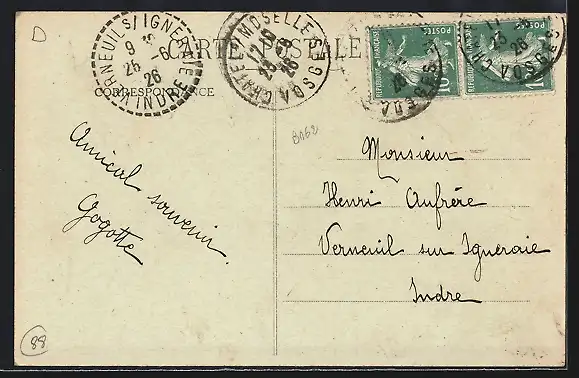 D
CARTE POSTALE
CORRESPONDENCE
VERNEUIL S/IGNERAIE
9
25 -6
26
INDRE
MOSELLE
VOSGES
26
RÉPUBLIQUE FRANÇAISE
POSTES
10
RÉPUBLIQUE FRANÇAISE
POSTES
VOSGES
26
8062
Amical souvenir
Gogotte
Monsieur
Henri Aufrère
Verneuil sur Igneraie
Indre
88